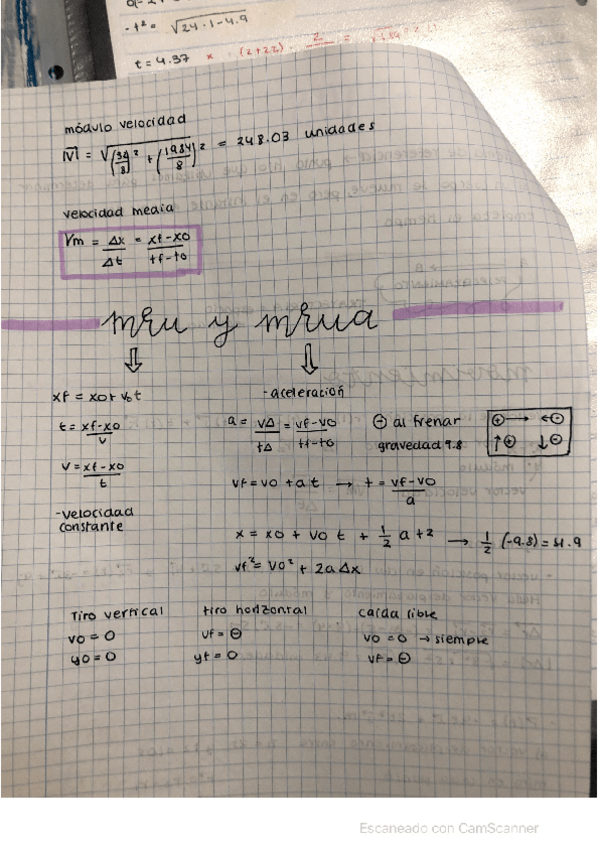 - t² = √24·1-4.9
t = 4.37
módulo velocidad
|V| = √(34/8)² + (1984/8)² = 248.03 unidades
velocidad media
Vm = Δx/Δt = xf-x0/tf-t0
mru y mrua
xf = x0 + v₀t
t = xf-x0/v
v = xf-x0/t
-velocidad
constante
-aceleración
a = vΔ/tΔ = vf-v0/tf-t0
⊖ al frenar
gravedad 9.8
⊕→ ←⊖
↑⊕ ↓⊖
vf = v0 + a t → t = vf-v0/a
x = x0 + v0 t + 1/2 a t2 → 1/2 (-9.8) = 4.9
vf² = v0² + 2aΔx
Tiro vertical
v0 = 0
y0 = 0
tiro horizontal
vf = ⊖
yt = 0
caída libre
v0 = 0 → siempre
vf = ⊖
Escaneado con CamScanner